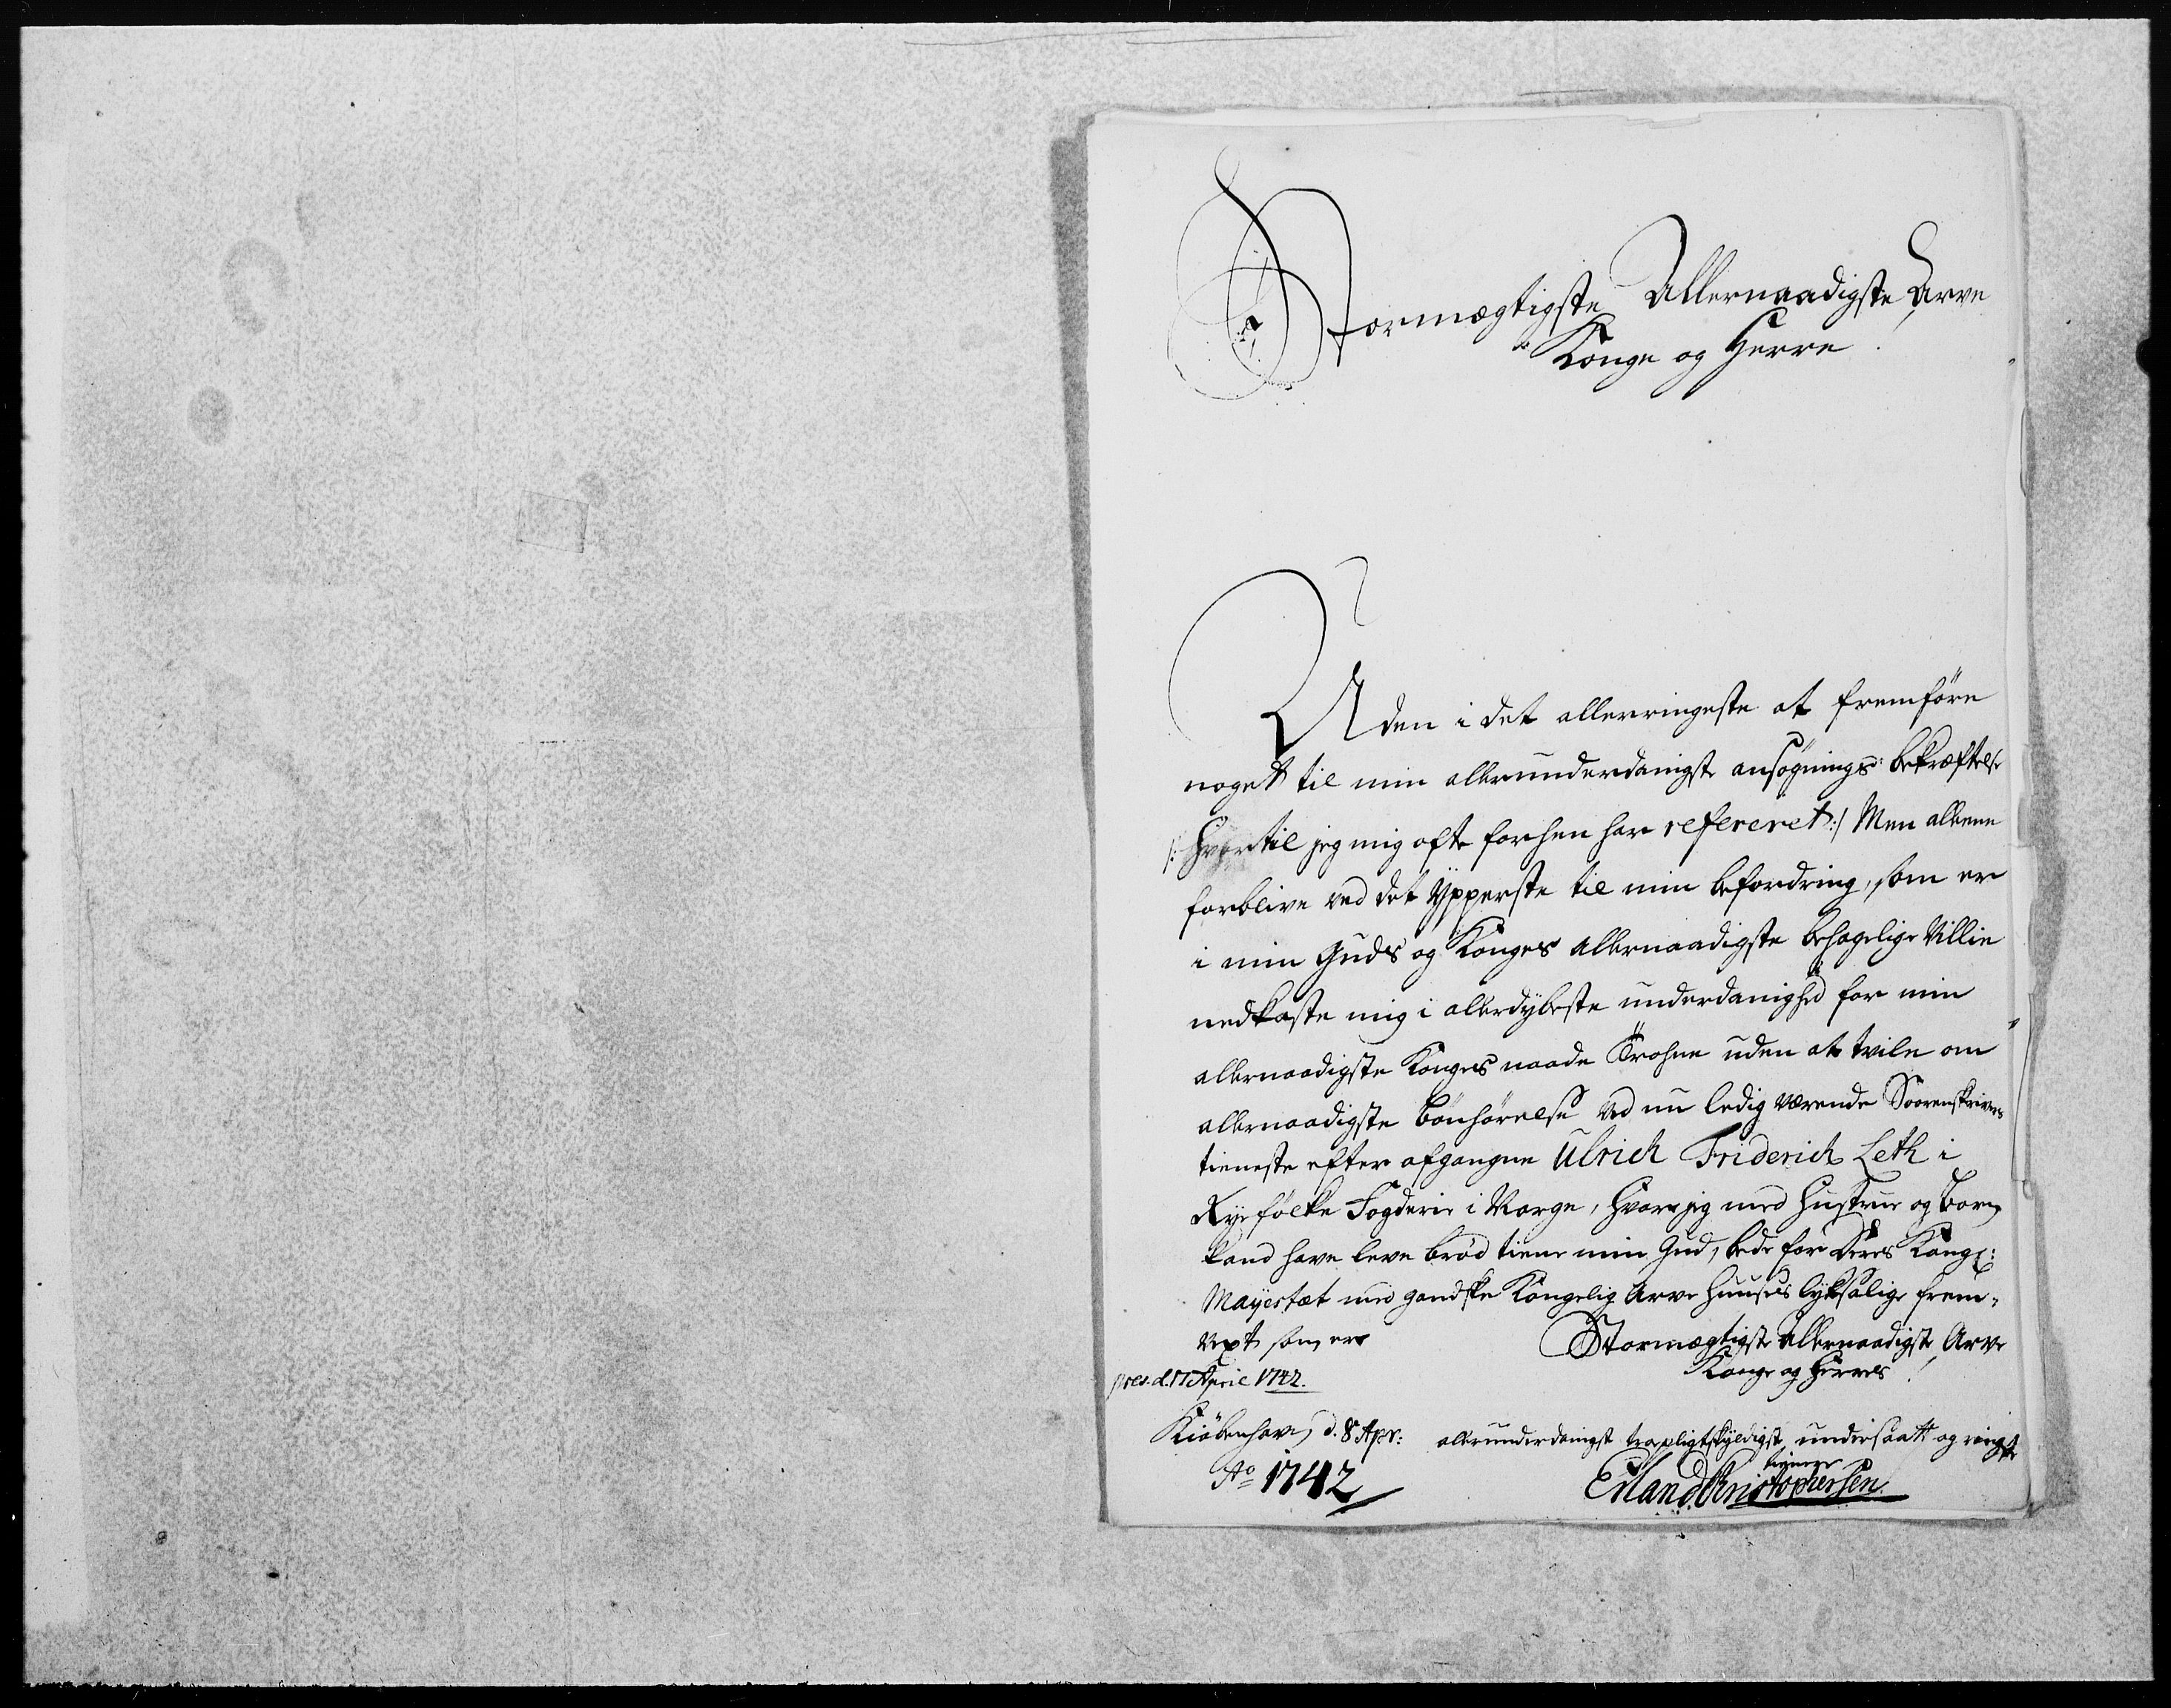 Stormægtigste Allernaadigste Arve
Konge og Herre
Uden i det allerringeste at fremföre
noget til min allerunderdanigste ansøgnings bekræftelse
/: hvortil jeg mig ofte forhen har refereret :/ Men allene
forblive ved det Ypperste til min befordring, som er
i min Guds og Konges allernaadigste behagelige Villie
nedkaste mig i allerdybeste underdanighed for min
allernaadigste Konges naade Trohne uden at tvile om
allernaadigste bönhörelse ved nu ledig værende Soorenskrivers
tieneste efter afgangne Ulrich Friderich Leth i
Ryefölke Fogderie i Norge, hvor jeg med hustrue og børn
kand have leve brød tiene min Gud, bede for Deres Kongl:
Mayestæt med gandske Kongelig Arve Huuses lyksalige frem-
vext som er
Stormægtigste Allernaadigste Arve
Konge og Herres
pres. d. 17 April 1742.
Kiöbenhavn d. 8 Apr:
Ao 1742
allerunderdanigst tropligtskyldigste undersaatt og ringeste
tienere
Erland Christophersen